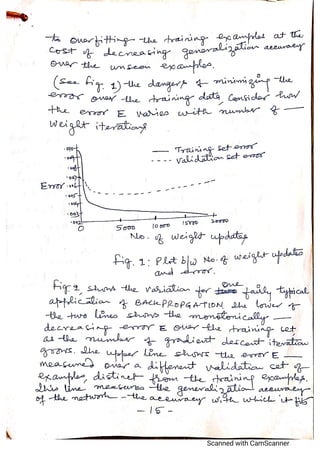 to overfitting the training examples at the
cost of decreasing generalization accuracy
over the unseen examples.
(see fig. 1) the dangers of minimizing the
error over the training data, consider how
the error E varies with number of —
weight iterations
—— Training set error
- - - - validation set error
Error
0
5000
10000
15000
20000
No. of weight updates
fig. 1: Plot b/w No. of weight updates
and error.
Fig 1 shows the variation for one fairly typical
application of BACKPROPGATION, the lower of
the two lines shows the monotonically —
decreasing error E over the training set
as the number of gradient descent iteration
grows. The upper line shows the error E —
measured over a different validation set of
examples, distinct from the training examples.
This line measures the generalization accuracy
of the network - the accuracy with which it fits
- 15 -
Scanned with CamScanner